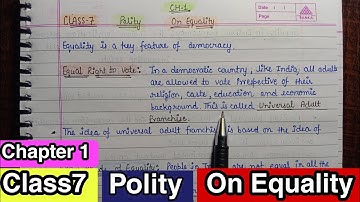 CH-1
CLASS-7 Polity On Equality
Date / /
Page
Equality is a key feature of democracy.
Equal Right to Vote: In a democratic country, like India, all adults
are allowed to vote irrespective of their
religion, caste, education, and economic
background. This is called Universal Adult
Franchise.
The idea of universal adult franchise is based on the idea of
Chapter 1
of Equality: People in are not equal in all the
Class7 Polity On Equality